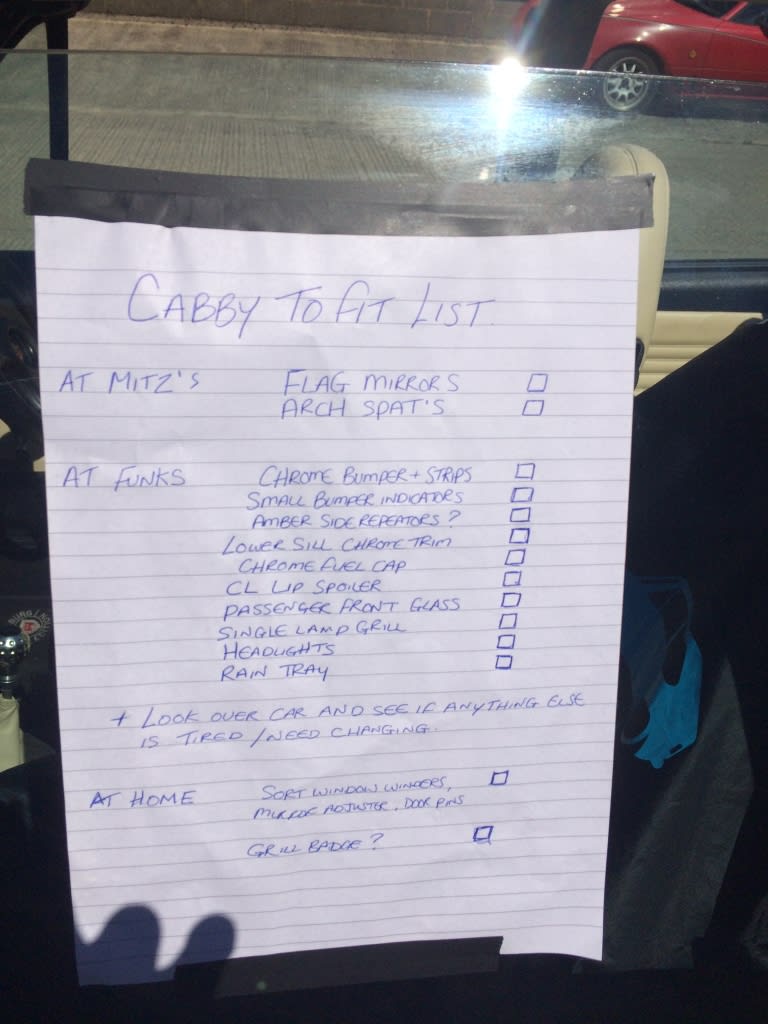 CABBY TO FIT LIST.
AT MITZ'S FLAG MIRRORS
ARCH SPAT'S
AT FUNKS CHROME BUMPER + STRIPS
SMALL BUMPER INDICATORS
AMBER SIDE REPEATORS?
LOWER SILL CHROME TRIM
CHROME FUEL CAP
CL LIP SPOILER
PASSENGER FRONT GLASS
SINGLE LAMP GRILL
HEADLIGHTS
RAIN TRAY
+ LOOK OVER CAR AND SEE IF ANYTHING ELSE
IS TIRED / NEED CHANGING.
AT HOME SORT WINDOW WINDERS,
MIRROR ADJUSTER, DOOR PINS
GRILL BADGE?